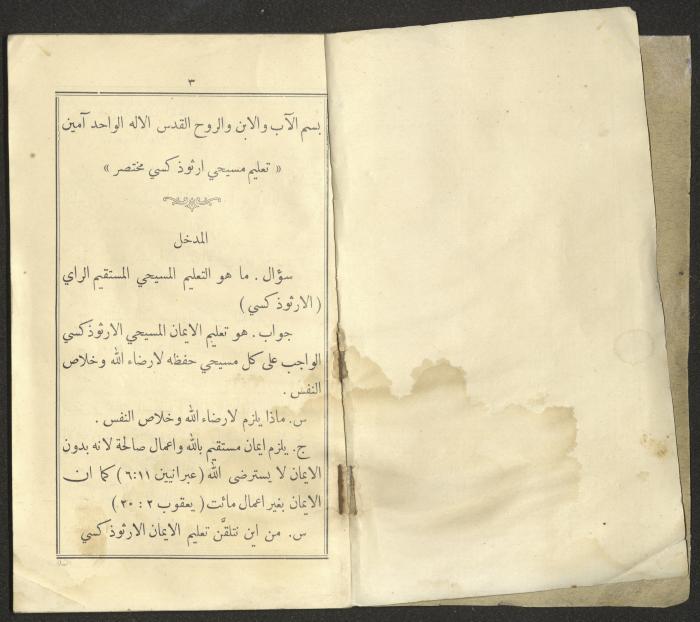 ٣
بسم الآب والابن والروح القدس الاله الواحد آمين
« تعليم مسيحي ارثوذكسي مختصر »
المدخل
سؤال . ما هو التعليم المسيحي المستقيم الراي
( الارثوذكسي )
جواب . هو تعليم الايمان المسيحي الارثوذكسي
الواجب على كل مسيحي حفظه لارضاء الله وخلاص
النفس .
س . ماذا يلزم لارضاء الله وخلاص النفس .
ج . يلزم ايمان مستقيم بالله واعمال صالحة لانه بدون
الايمان لا يسترضى الله ( عبرانيين ٦:١١ ) كما ان
الايمان بغير اعمال مائت ( يعقوب ٢ : ٢٠ )
س . من اين نتلقَّن تعليم الايمان الارثوذكسي